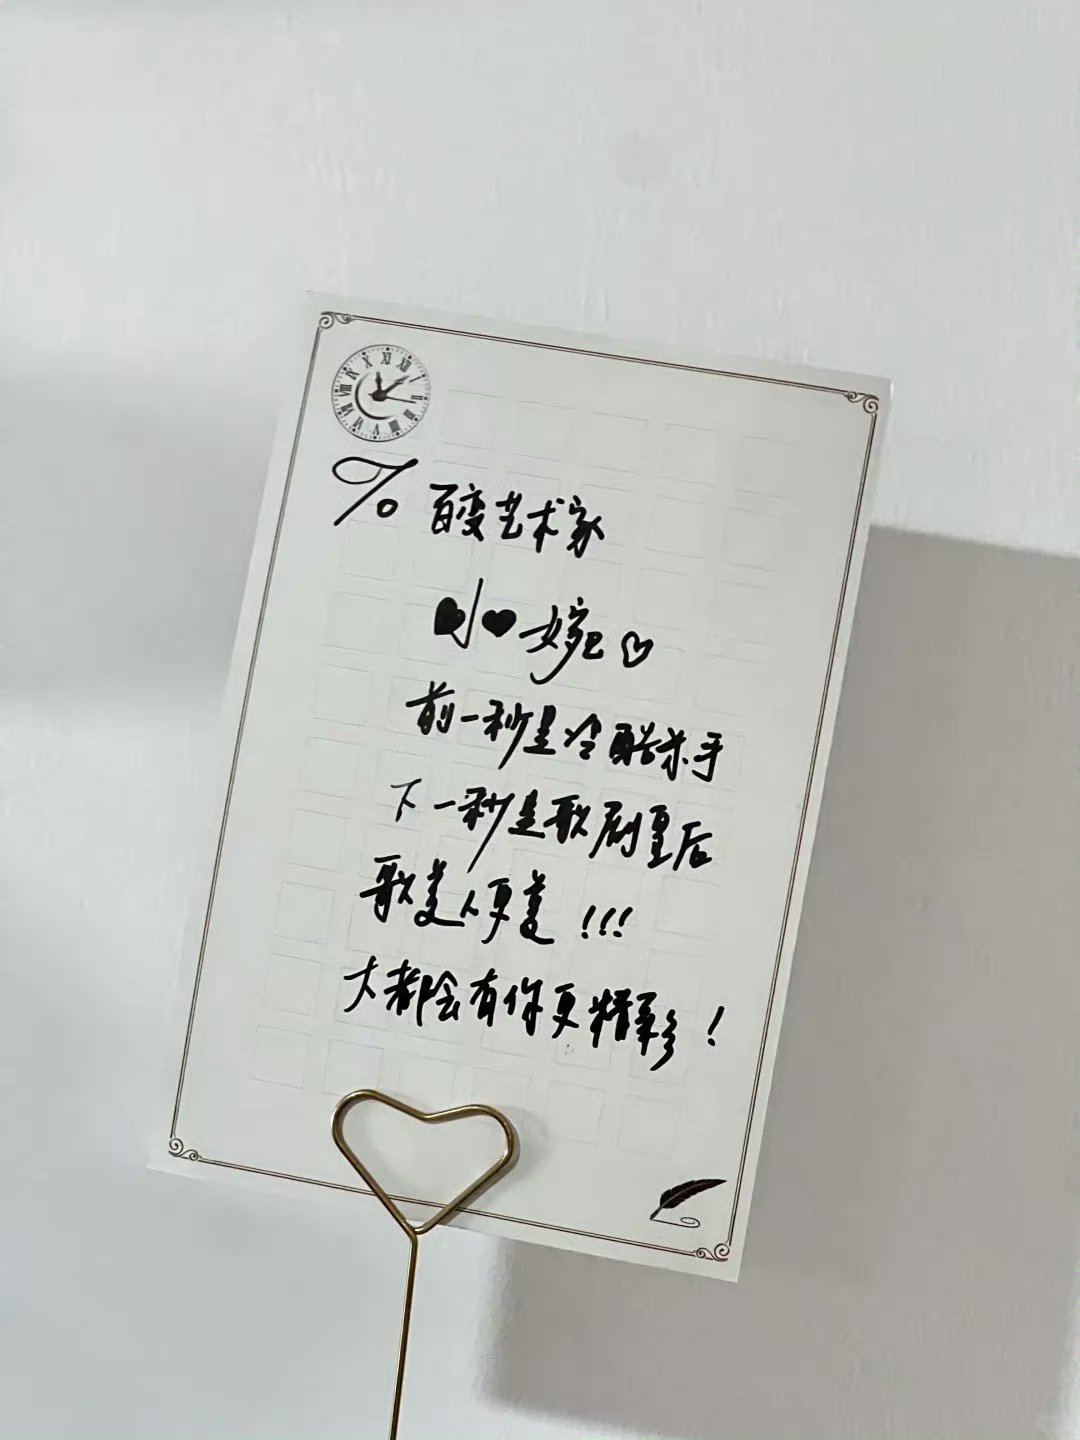 To 百变艺术家
小婉
前一秒是冷酷杀手
下一秒是歌剧皇后
歌美人更美!!!
大都会有你更精彩!